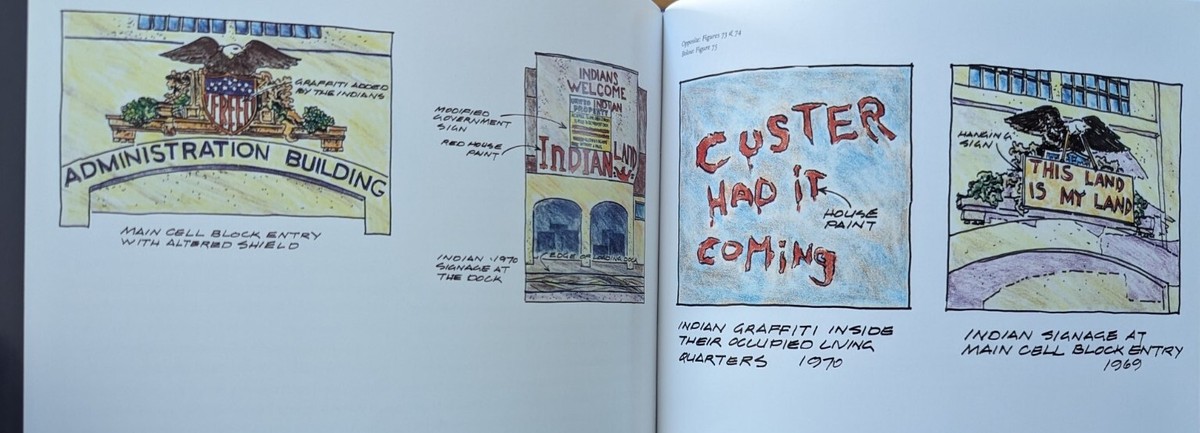 FREE
GRAFFITI ADDED
BY THE INDIANS
ADMINISTRATION BUILDING
MAIN CELL BLOCK ENTRY
WITH ALTERED SHIELD
INDIANS
WELCOME
INDIAN
PROPERTY
INDIAN LAND
MODIFIED
GOVERNMENT
SIGN
RED HOUSE
PAINT
EDGE OF LOADING DOCK
INDIAN 1970
SIGNAGE AT
THE DOCK
Opposite: Figures 73 & 74
Below: Figure 75
CUSTER
HAD iT
COMiNg
HOUSE
PAINT
INDIAN GRAFFITI INSIDE
THEIR OCCUPIED LIVING
QUARTERS 1970
HANGING
SIGN
THIS LAND
IS MY LAND
INDIAN SIGNAGE AT
MAIN CELL BLOCK ENTRY
1969